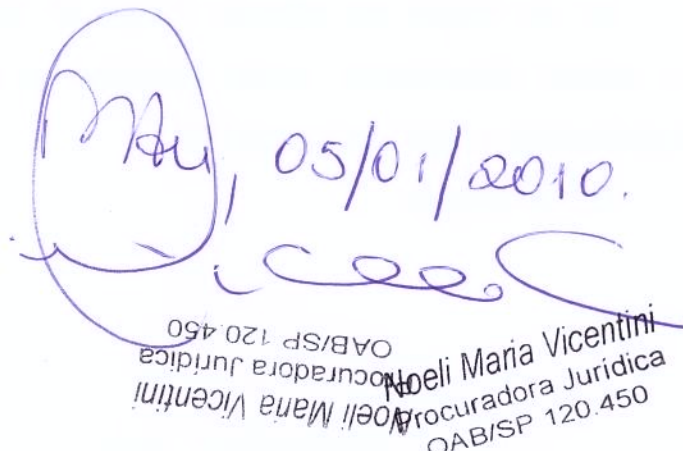 05/01/2010.
Noeli Maria Vicentini
Procuradora Jurídica
OAB/SP 120.450
Noeli Maria Vicentini
Procuradora Jurídica
OAB/SP 120.450